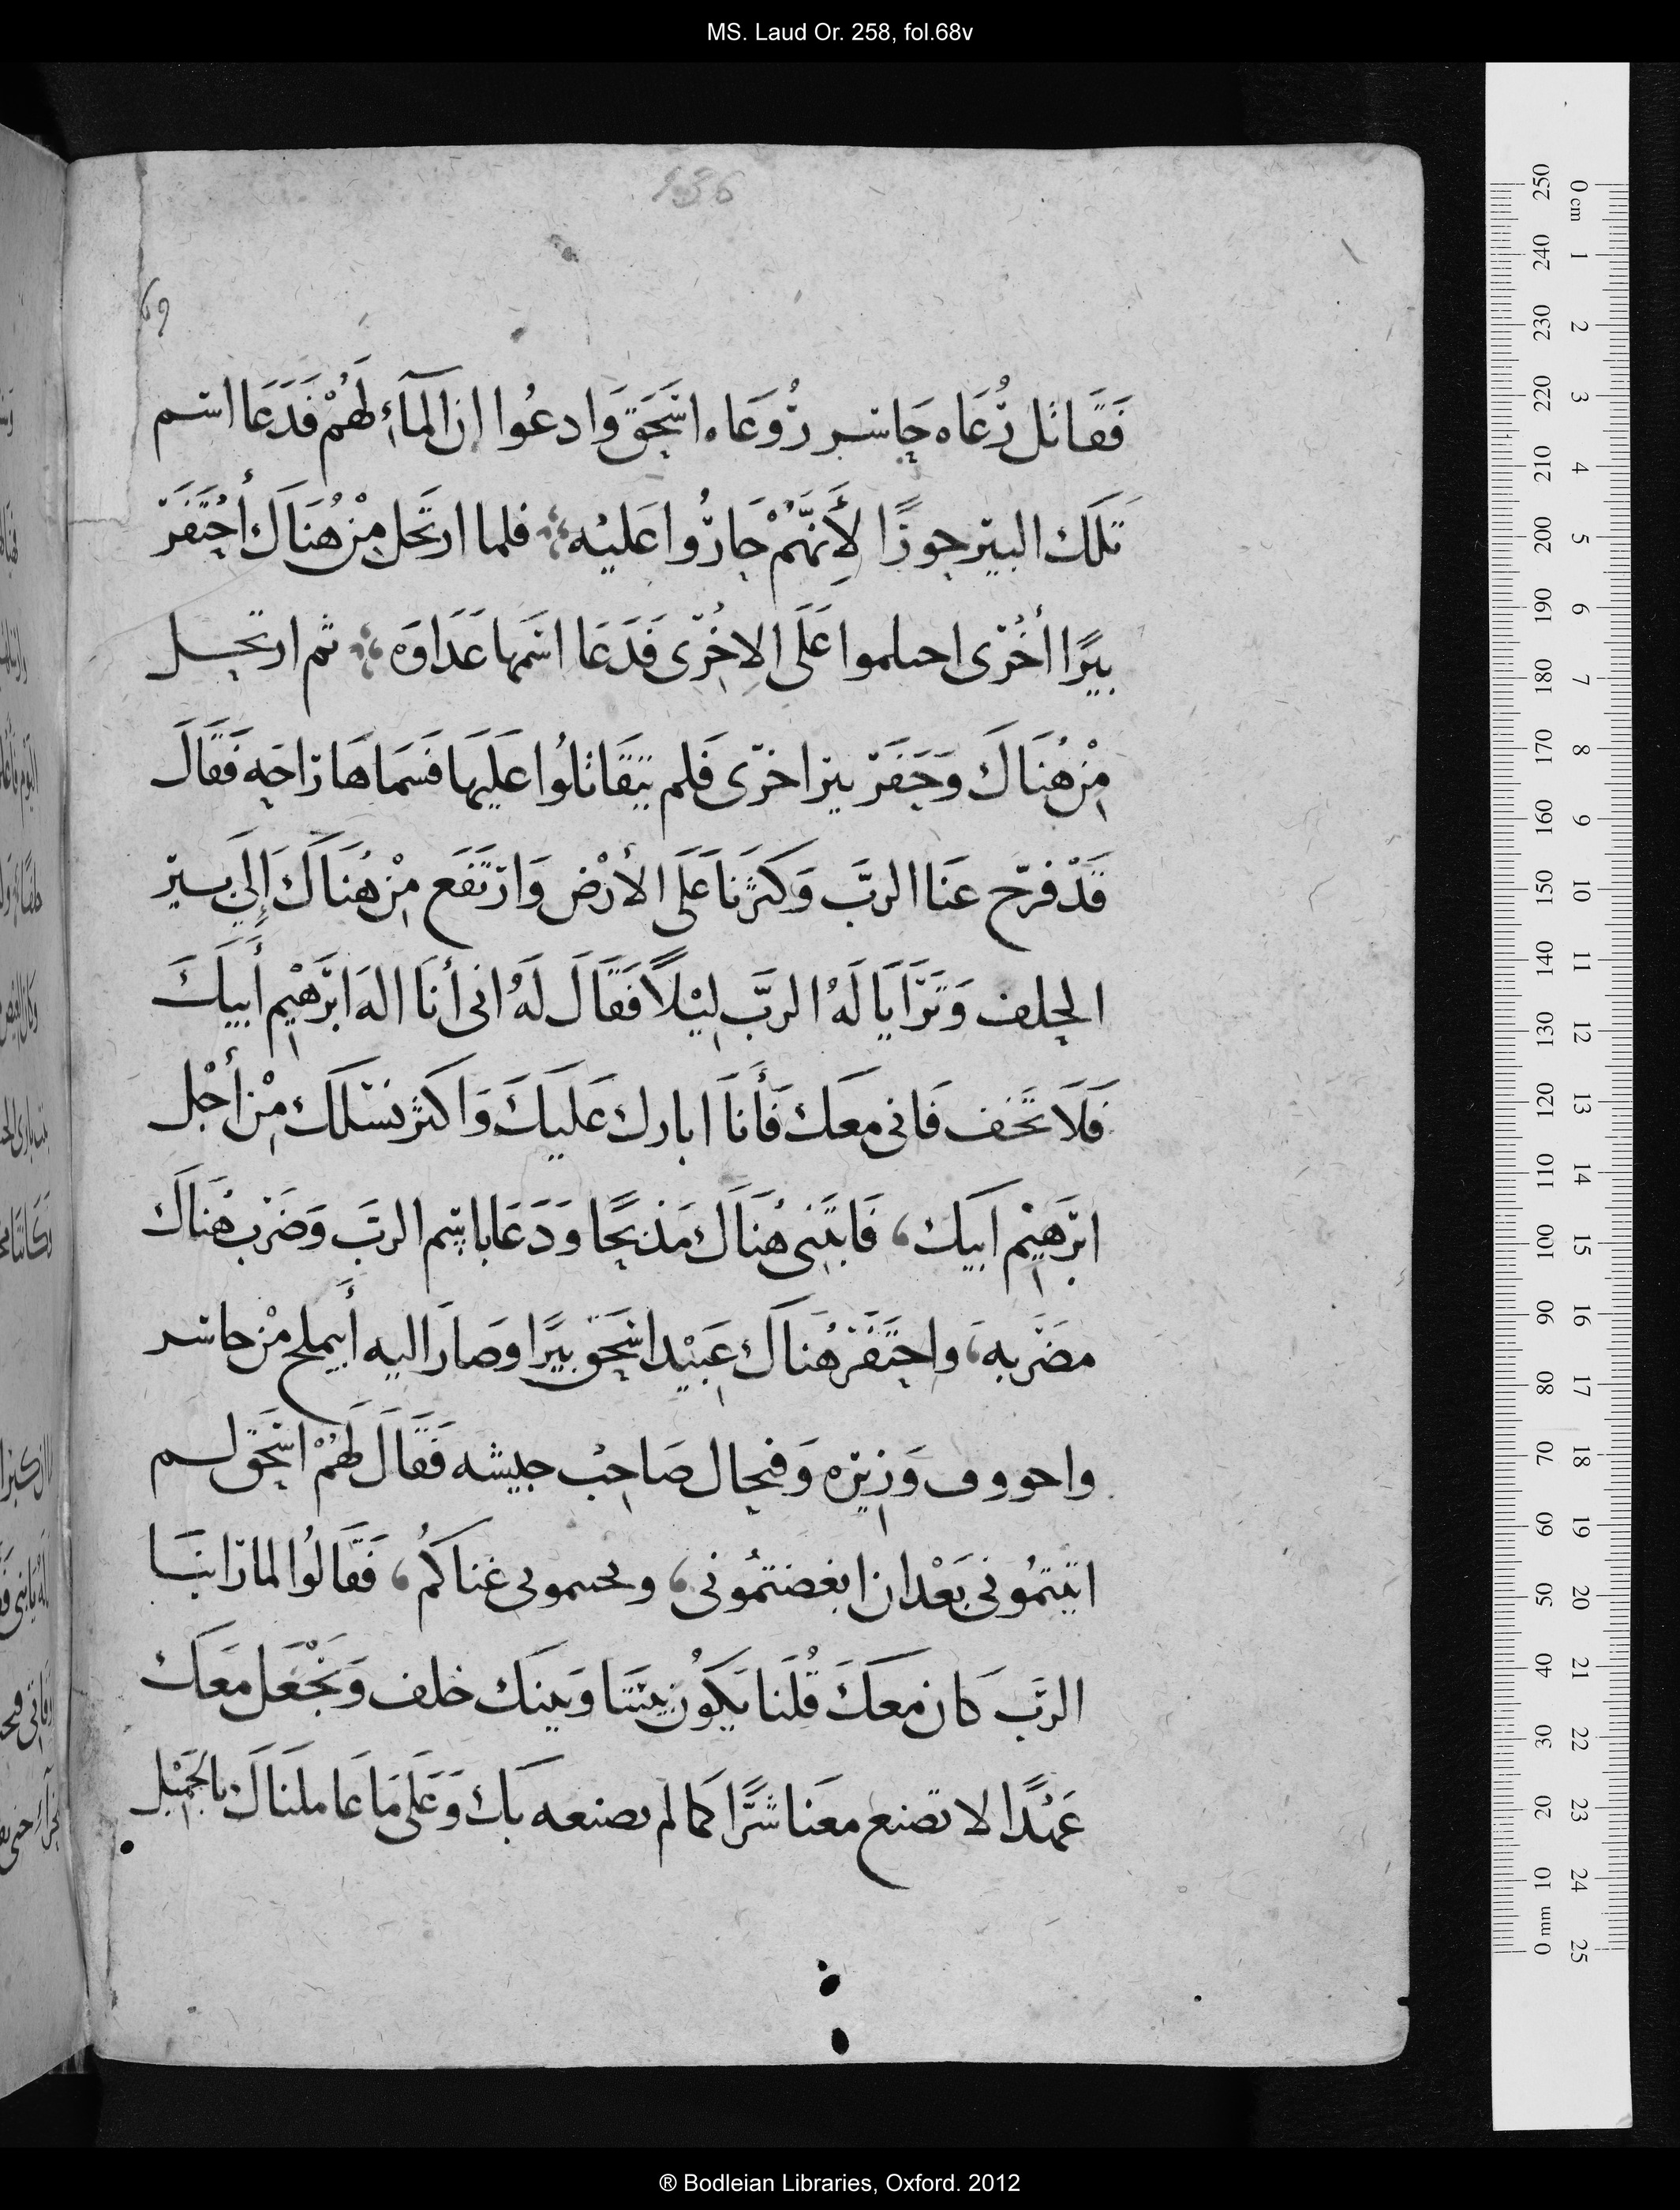 MS. Laud Or. 258, fol.68v
136
69
فَقَاتل رُعَاه جَاسر رُوعَاء اسْحَق وَادعُوا ان المآءَ لَهُمْ فَدَعَا اسم
تلكَ البير جورًا لأَنَّهُمْ جَارُوا عَليْه فلما ارتحَل مِنْ هُنَاكَ أحْتَفَرَ
بيرًا أخُرى احىلموا عَلَى الاخِرى فَدَعَا اسَمها عَدَاوَه ثم ارتحل
مِنْ هُنَاكَ وَحَفَرَ بيرا اخرى فَلم يَتَقَاتلُوا عَلَيهَا فَسَمَاهَا رَاحَه فَقَالَ
قَدْ فرح عَنا الربَّ وَكثرَنَا عَلَى الأرْض وَارتَفَع مِنْ هُنَاكَ إِلَي بير
الحلف وَتَرَايَا لَهُ الربَّ لِيْلاً فَقَالَ لَهُ انى أنَا اله ابرَهيْم أَبيكَ
فَلاَ تَخف فَانى مَعَك فَأنَا ابارك عَليكَ وَاكثر نسْلكَ مِنْ أجْل
ابرَهِيْم ابيَك، فَابتَنى هُنَاكَ مَذبحًا وَدَعَا باسِم الربَّ وَضَرَب هُنَاكَ
مضَربه، واحتَفَرَ هُنَاكَ عَبيْد اسْحَق بيرًا وَصَارَ اليه أَبيملخ مْن جاسر
واحووف وَزِيره وَفيحال صَاحِبْ جيشه فَقَالَ لَهُمْ اسْحَق لم
اتيتمُوني بَعْد ان ابغضتمُونى، ونحىىمونى عَناكمُ، فَقَالُوا لما رَاينَا
الربَّ كان معَكَ قُلنَا يَكُونُ بينَنا وَبينكَ خلف وَنجْعَل مَعَكَ
عَهْدًا لا تصنع معَنا شرًّا كما لم نصنعه بَكَ وَعَلى مَا عَاملنَاكَ بالجَمِيْل
® Bodleian Libraries, Oxford. 2012